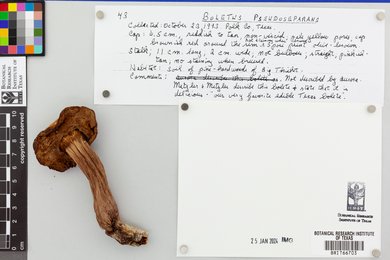 43 BOLETUS PSEUDOSEPARANS
Collected: October 23 1993 Polk Co. Texas.
Cap: 6.5 cm, reddish to tan, non-viscid, pale yellow pores, cap
brownish red around the rim & spore print olive-brown
Stalk, 11 cm long, 2 cm wide, not bulbous, straight, pinkish-
tan, no staining when bruised.
Habitat: Soil of pine-hardwoods of Big Thicket.
Comment: Not described by
Metzler & Metzler describe this bolete & state that it is
delicious - "our very favorite edible Texas bolete."
BOTANICAL RESEARCH
INSTITUTE OF TEXAS
copyright reserved
cm
BOTANICAL RESEARCH
INSTITUTE OF TEXAS
25 JAN 2024 IMO
BOTANICAL RESEARCH INSTITUTE
OF TEXAS
BRIT66703